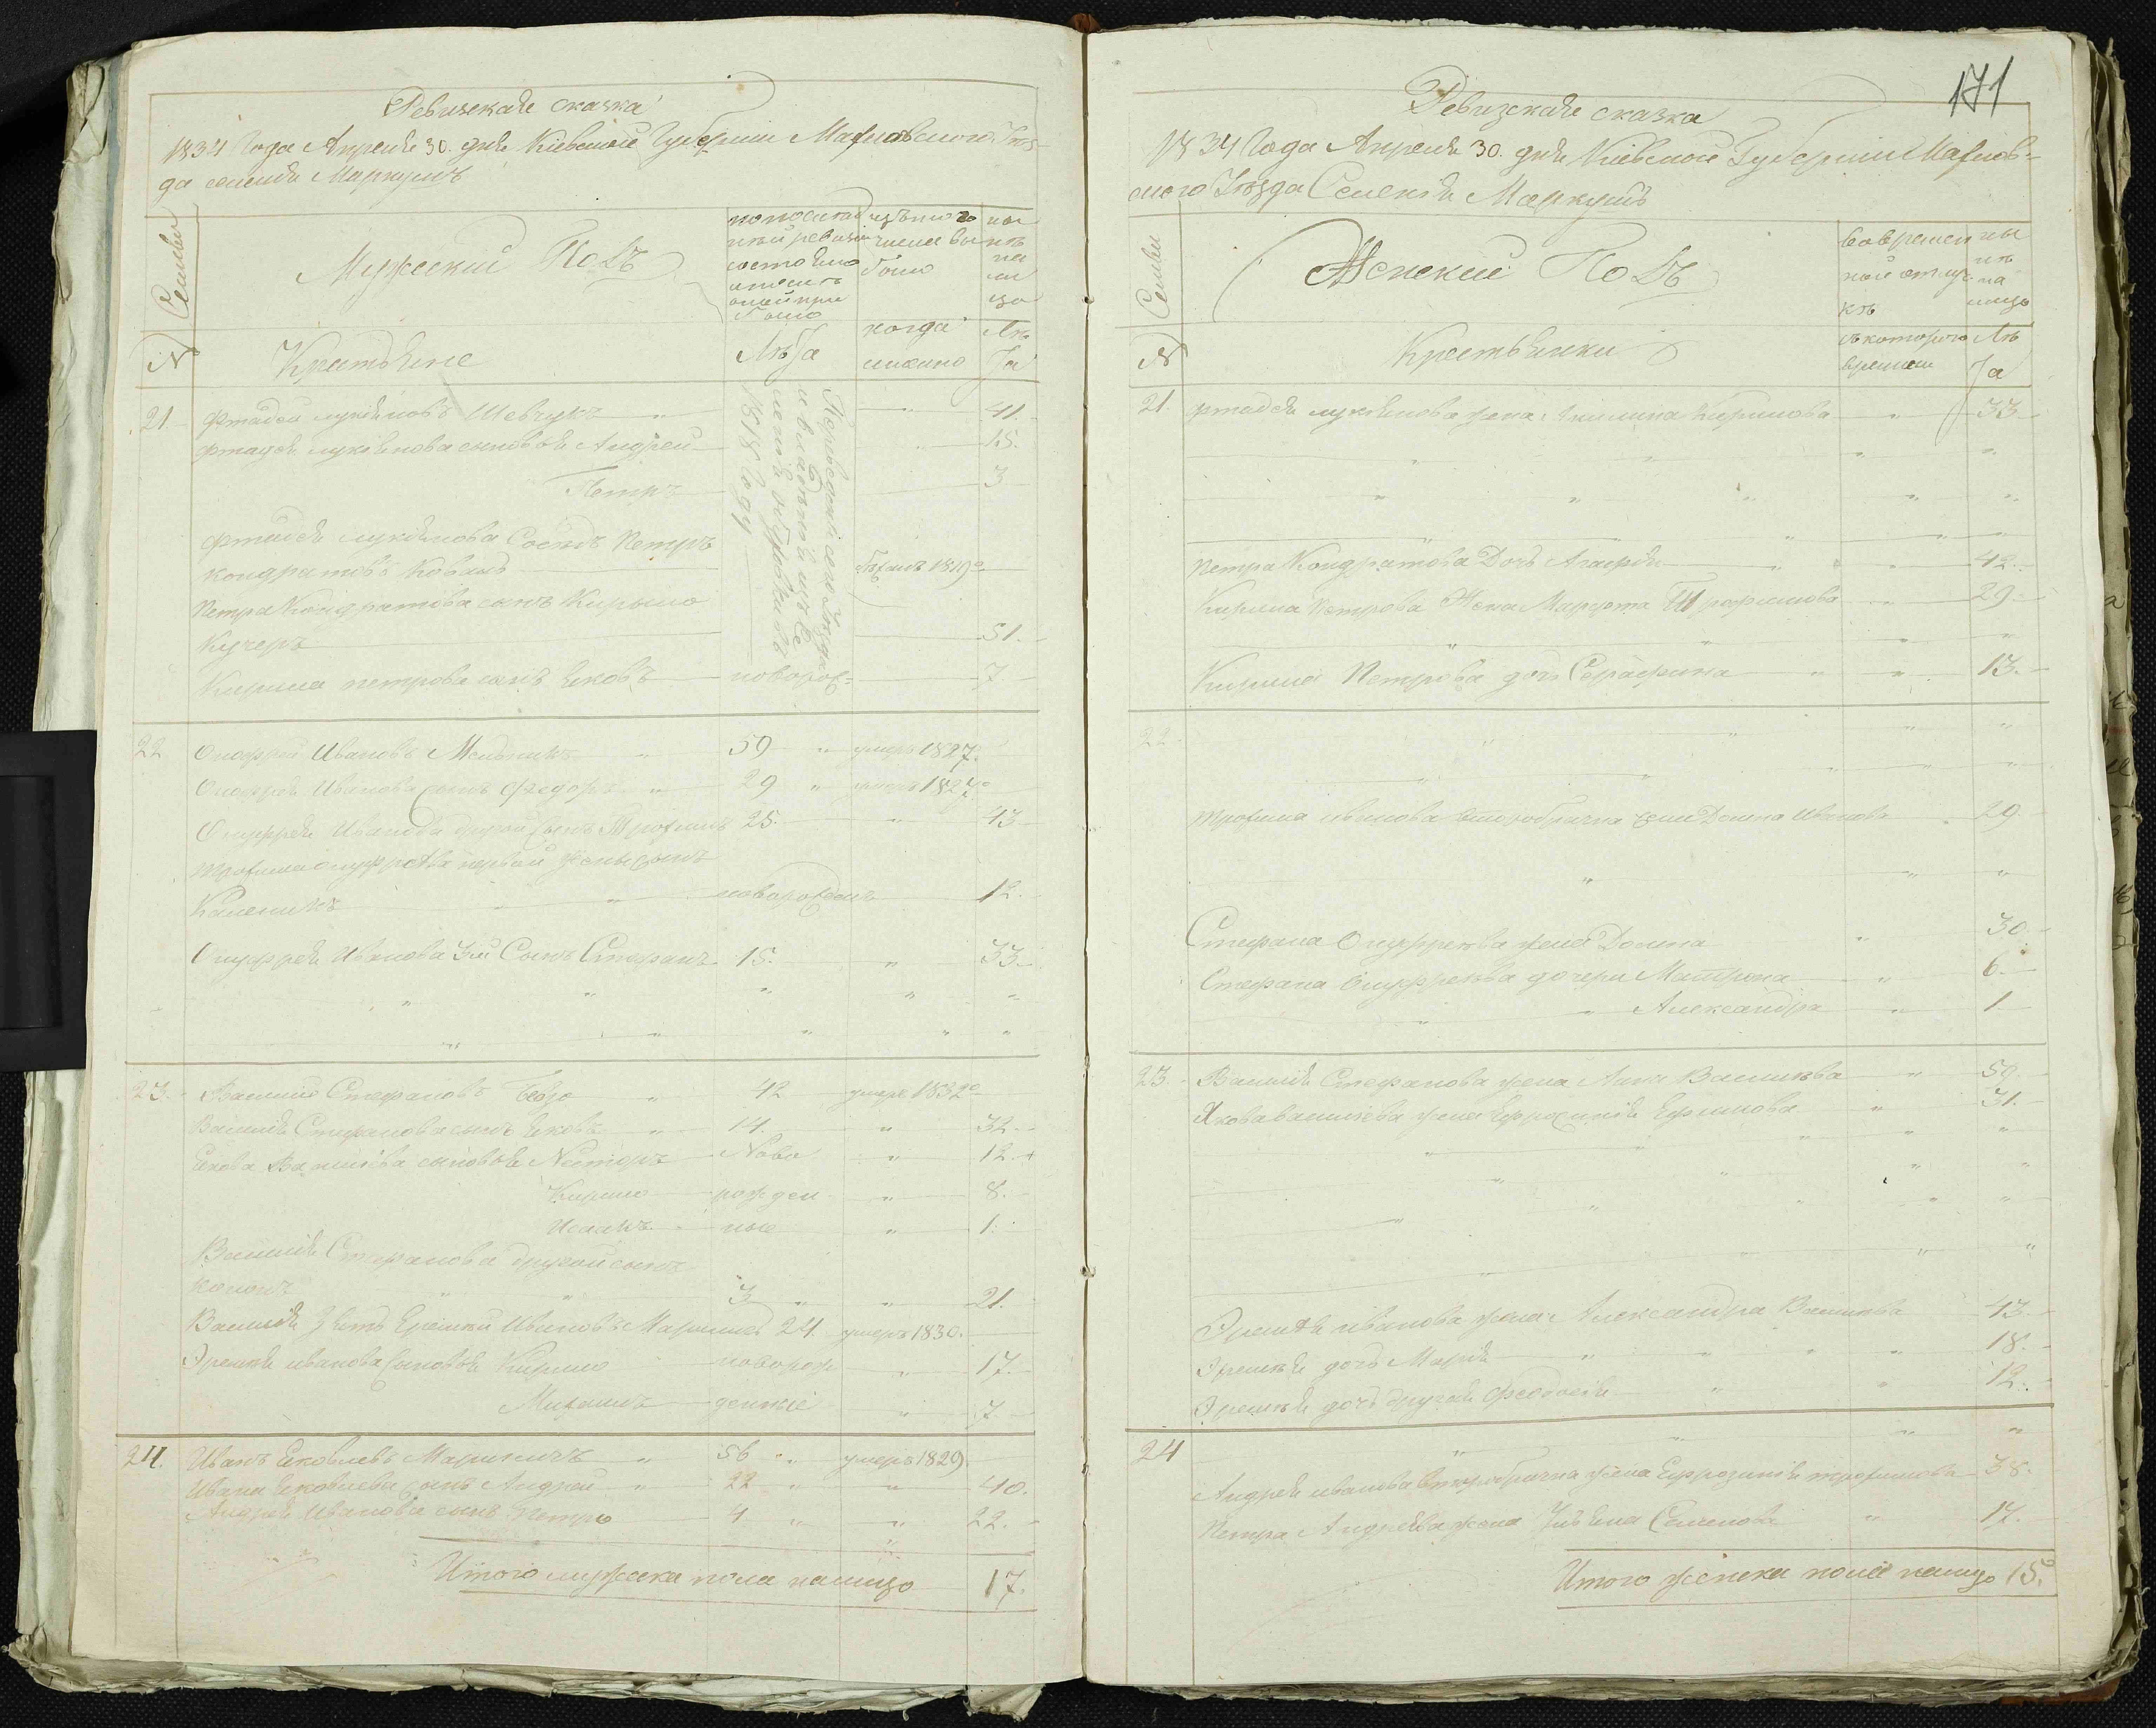 Ревизская сказка
1834 Года Апреля 30. дня Киевской Губернии Махновского Уез-
да селения Маркушъ
Семьи
Мужеский Полъ
по последней ревизии состояло и после оной прибыло
изъ того числа выбыло
ныне на лицо
N
Крестьяне
Лета
когда именно
Лета
21. Фтадей Лукьяновъ Шевчукъ " 41.
Фтадея Лукьянова сыновья Андрей 15.
Петръ 3
Фтадея Лукьянова Соседъ Петръ
Кондратовъ Коваль 1819го
Петра Кондратова сынъ Кирыло
Кучеръ 51.
Кирила Петрова сынъ Яковъ новорож= 7
1818 году
22 Онофрей Ивановъ Мельникъ " 59 " умеръ 1827.
Онофрея Иванова сынъ Федоръ " 29 " умеръ 1827го
Онуфрея Иванова другой сынъ Трохимъ 25. " 43
Трохима Онуфреева первой жены сынъ
Каленикъ " новорожденъ 12.
Онуфрея Иванова 3й Сынъ Стефанъ 15. " 33
23. Василий Стефановъ " 42 умеръ 1832го
Василия Стефанова сынъ Яковъ " 14. " 32
Якова Василиева сыновья Несторъ Ново " 12.
Кирило рожден " 8.
Исакъ ные " 1.
Василия Стефанова другой сынъ
Кононъ " 3 " " 21.
Василия Зять Еремий Ивановъ 24. умеръ 1830.
Яремия Иванова Сыновья Кирило новорож " 17.
Михаилъ денные " 7
24. Иванъ Яковлевъ " 56 " умеръ 1829
Ивана Яковлева сынъ Андрей " 22 " " 40.
Андрея Иванова сынъ Петро 4 " " 22.
Итого мужеска пола налицо 17.
171
Ревизская сказка
1834 Года Апреля 30. дня Киевской Губернии Махнов-
ского Уезда Селения Маркушъ
Семьи
Женский Полъ
во временной отлучке
ныне на лицо
N
Крестьянки
съ которого времени
Лета
21. Фтадея Лукьянова жена Акилина Кирилова " 33
Петра Кондратова Дочь Агафия " 42.
Кирила Петрова Жена Марфта Трофимова " 29.
Кирила Петрова дочь Серафина " 13.
22
Трохима Иванова второбрачна жена Домна Иванова 29
Стефана Онуфреева жена Домна " 30
Стефана Онуфреева дочери Матрона " 6.
" Александра " 1
23. Василия Стефанова жена Анна Василиева " 50.
Якова Василиева жена Ефросиния Ефимова " 31.
Яремия Иванова жена Александра Василиева 43.
Яремия дочь Мария " 18.
Яремия дочь другая Феодосия " 12.
24
Андрея Иванова второбрачна жена Ефрозиния Трофимова 38.
Петра Андреева жена Улияна Семенова " 17.
Итого женска пола налицо 15.